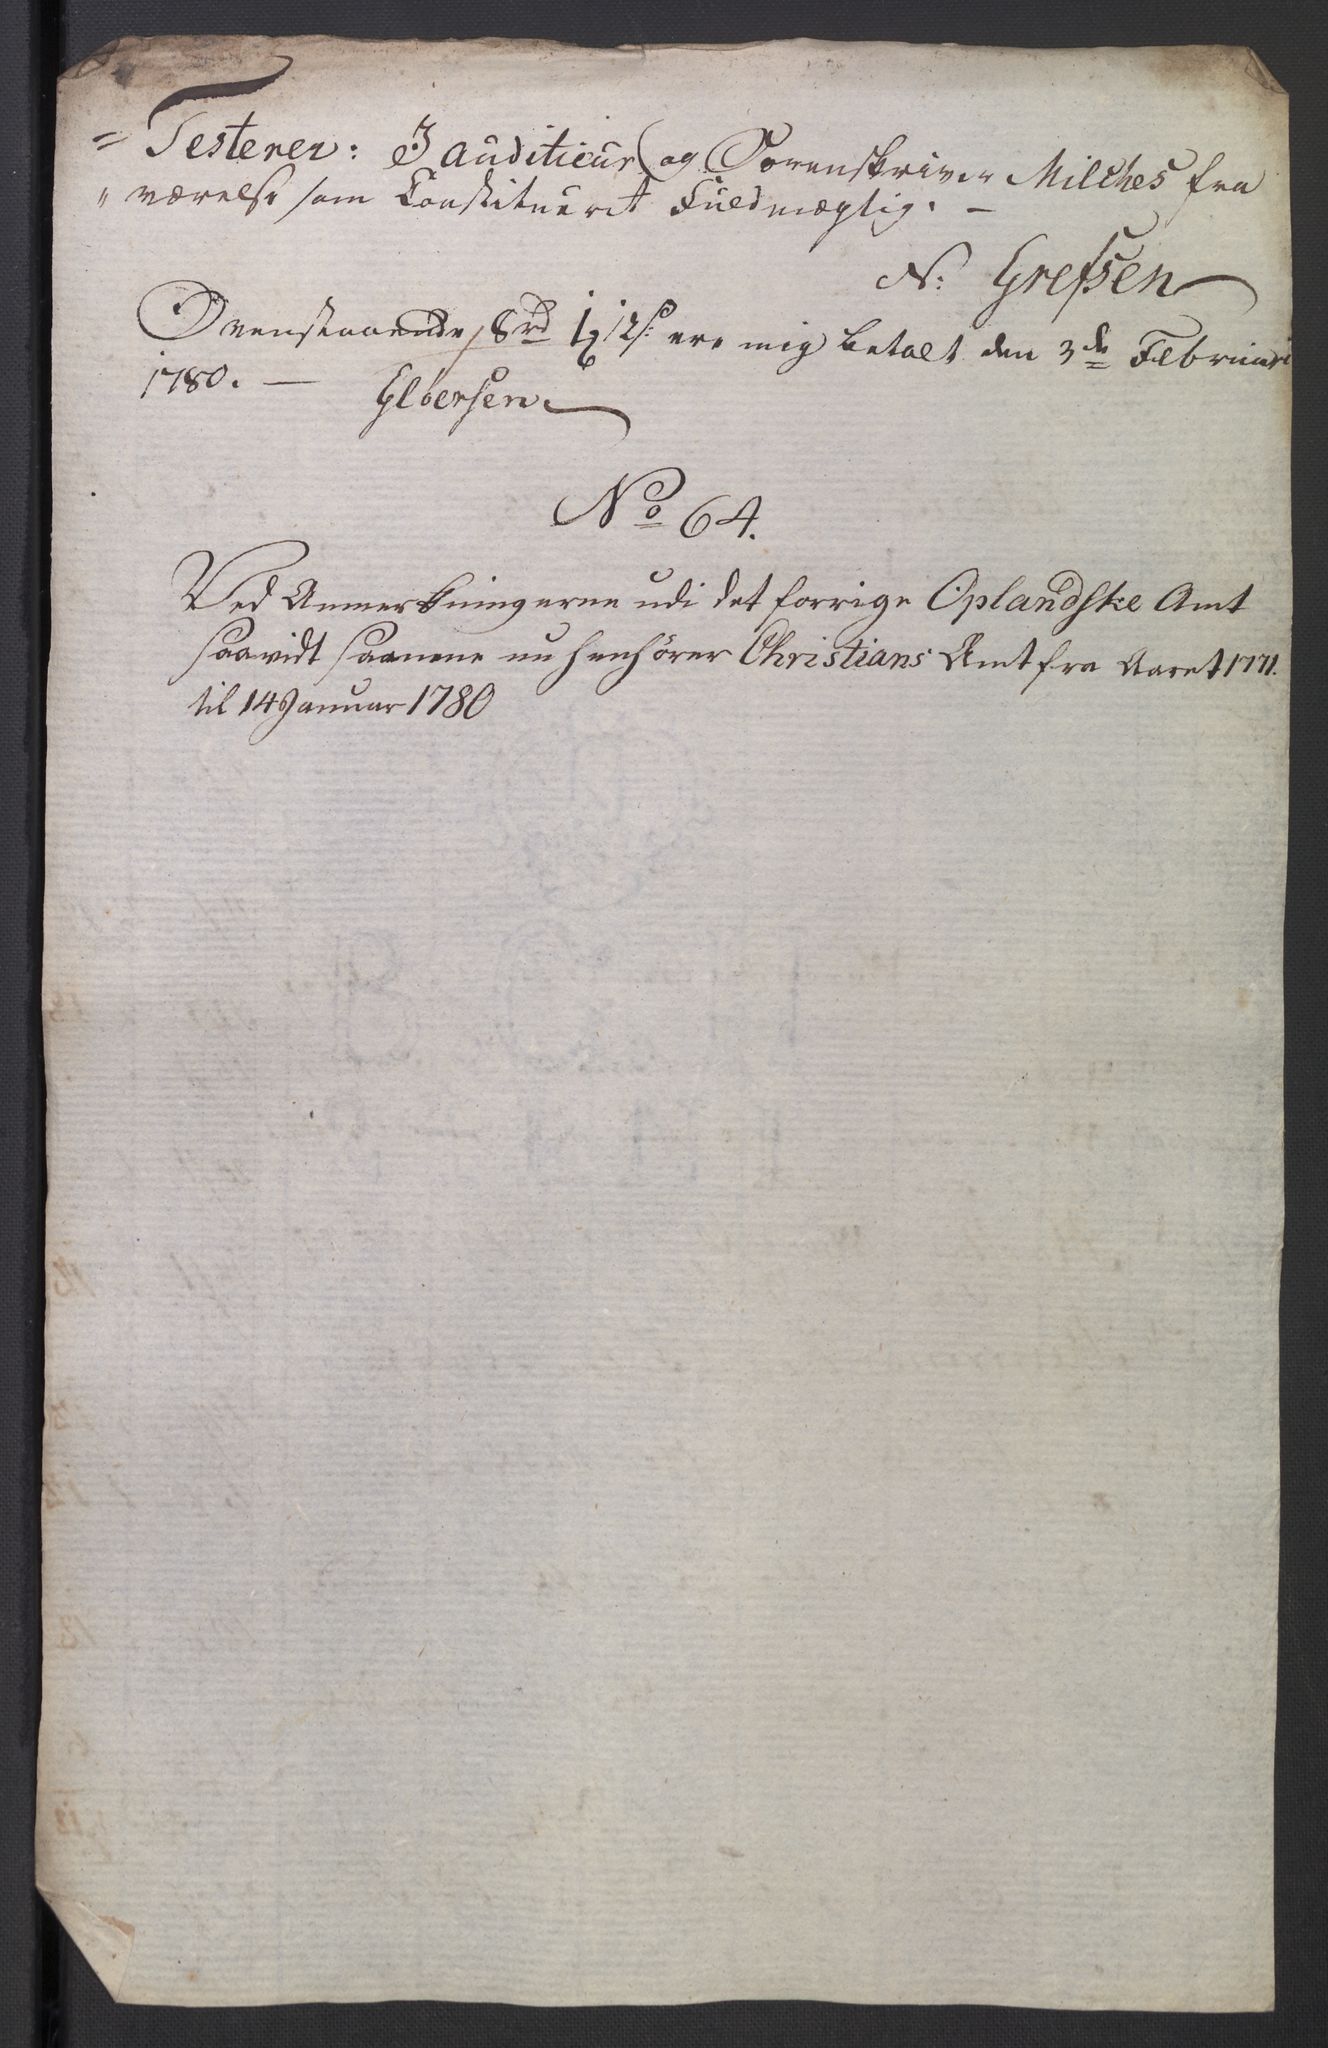 = Testerer: I auditieur og Sorenskriver Milches fra
" værelse som Constitueret Fuldmægtig. —
N: Grefsen
Ovenstaaende 8 rd 1 12 s: ere mig betalt den 3de Februari
1780. — Gloersen
No 64.
Ved Anmerkningerne udi det forrige Oplandske Amt
saavidt samme nu henhörer Christians Amt fra Aaret 1771.
til 14 Januar 1780